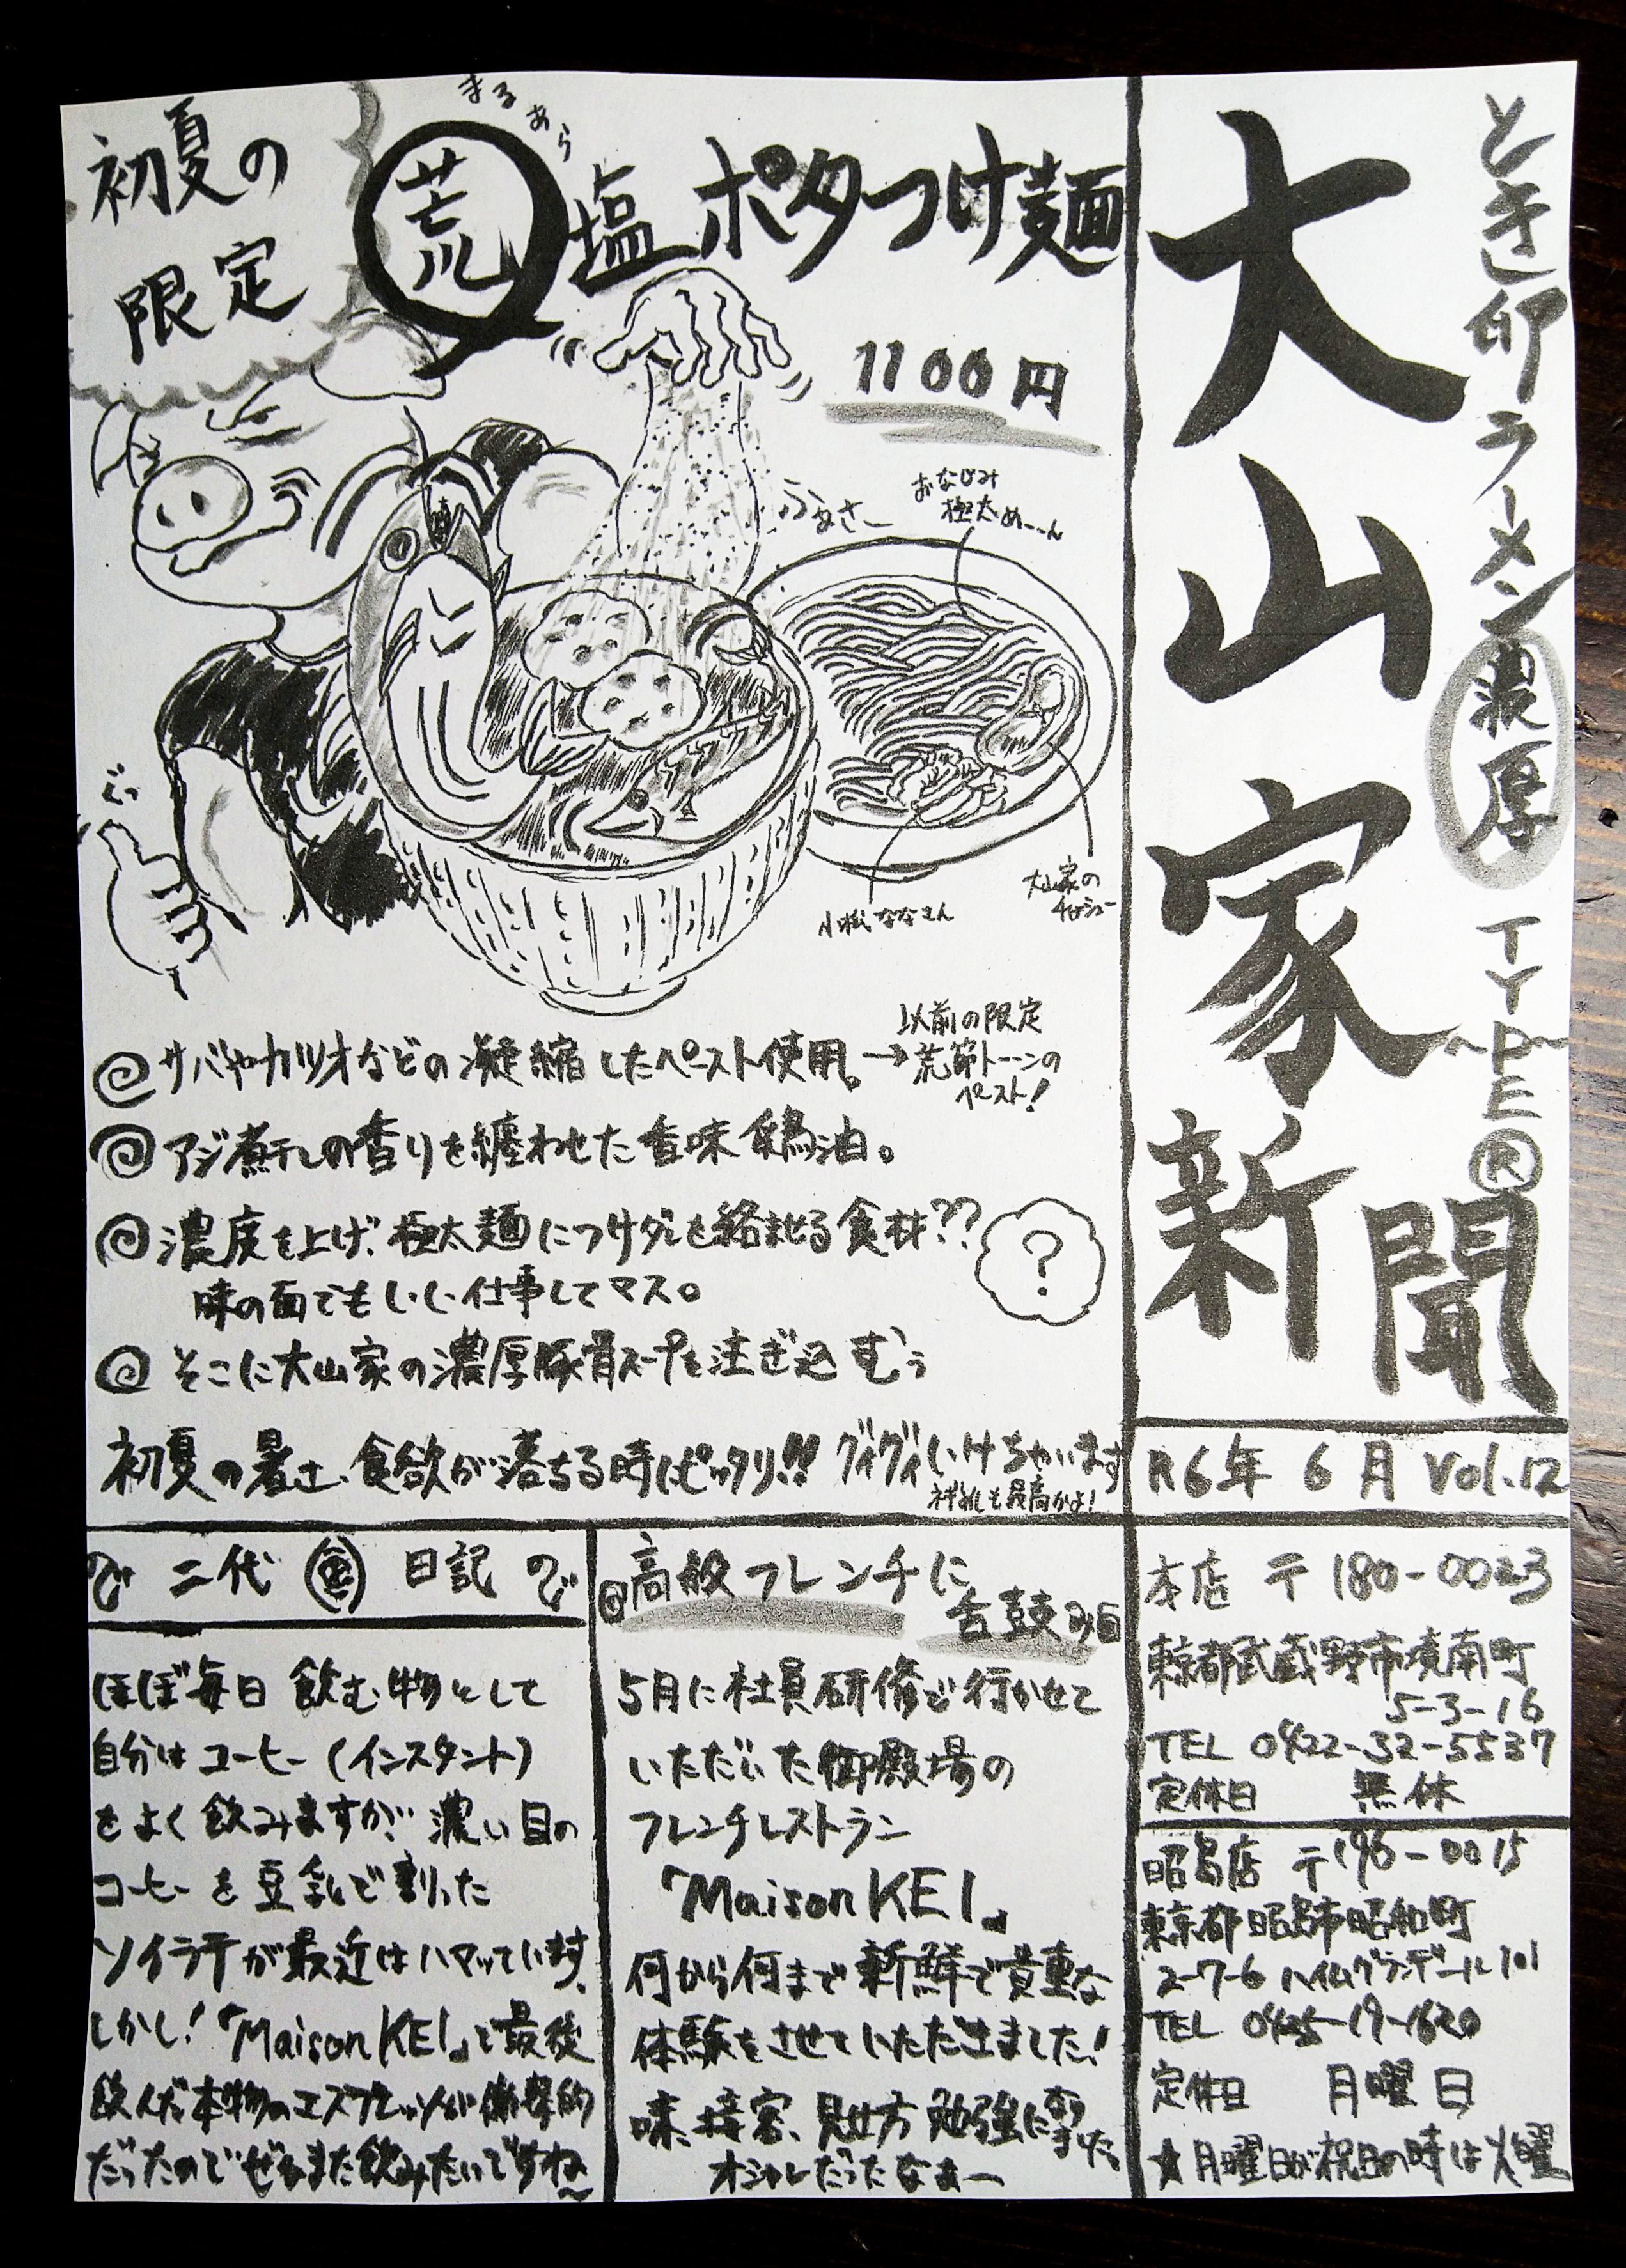 とき卵ラーメン濃厚TYPE®
大山家新聞
R6年 6月 Vol.12
初夏の
限定
まるあら
荒塩ポタつけ麺
1100円
ふぁさー
おなじみ
極太めーーん
大山家の
チャーシュー
小松ななさん
@サバやカツオなどの凝縮したペースト使用。→
以前の限定
荒節トーーンの
ペースト!
@アジ煮干しの香りを纏わせた香味鶏油。
@濃度を上げ、極太麺につけダレを絡ませる食材??
?
味の面でもいい仕事してマス。
@そこに大山家の濃厚豚骨スープを注ぎ込むぅ
初夏の暑さ、食欲が落ちる時にピッタリ!! グイグイいけちゃいます
二代目日記
ほぼ毎日 飲む物として
自分はコーヒー(インスタント)
をよく飲みますが、濃い目の
コーヒーを豆乳で割った
ソイラテが最近はハマっています。
しかし!「Maison KEI」で最後
飲んだ本物のエスプレッソが衝撃的
だったのでぜひまた飲みたいですね〜
@高級フレンチに
舌鼓み@
5月に社員研修で行かせて
いただいた御殿場の
フレンチレストラン
「Maison KEI」
何から何まで新鮮で貴重な
体験をさせていただきました!
味、接客、見せ方 勉強に
オシャレだったなぁー
本店 〒180-0023
東京都武蔵野市境南町
5-3-16
TEL 0422-32-5537
定休日 無休
昭島店 〒196-0015
東京都昭島市昭和町
2-7-6 ハイムグランデール101
TEL 0425-19-1620
定休日 月曜日
★月曜日が祝日の時は火曜